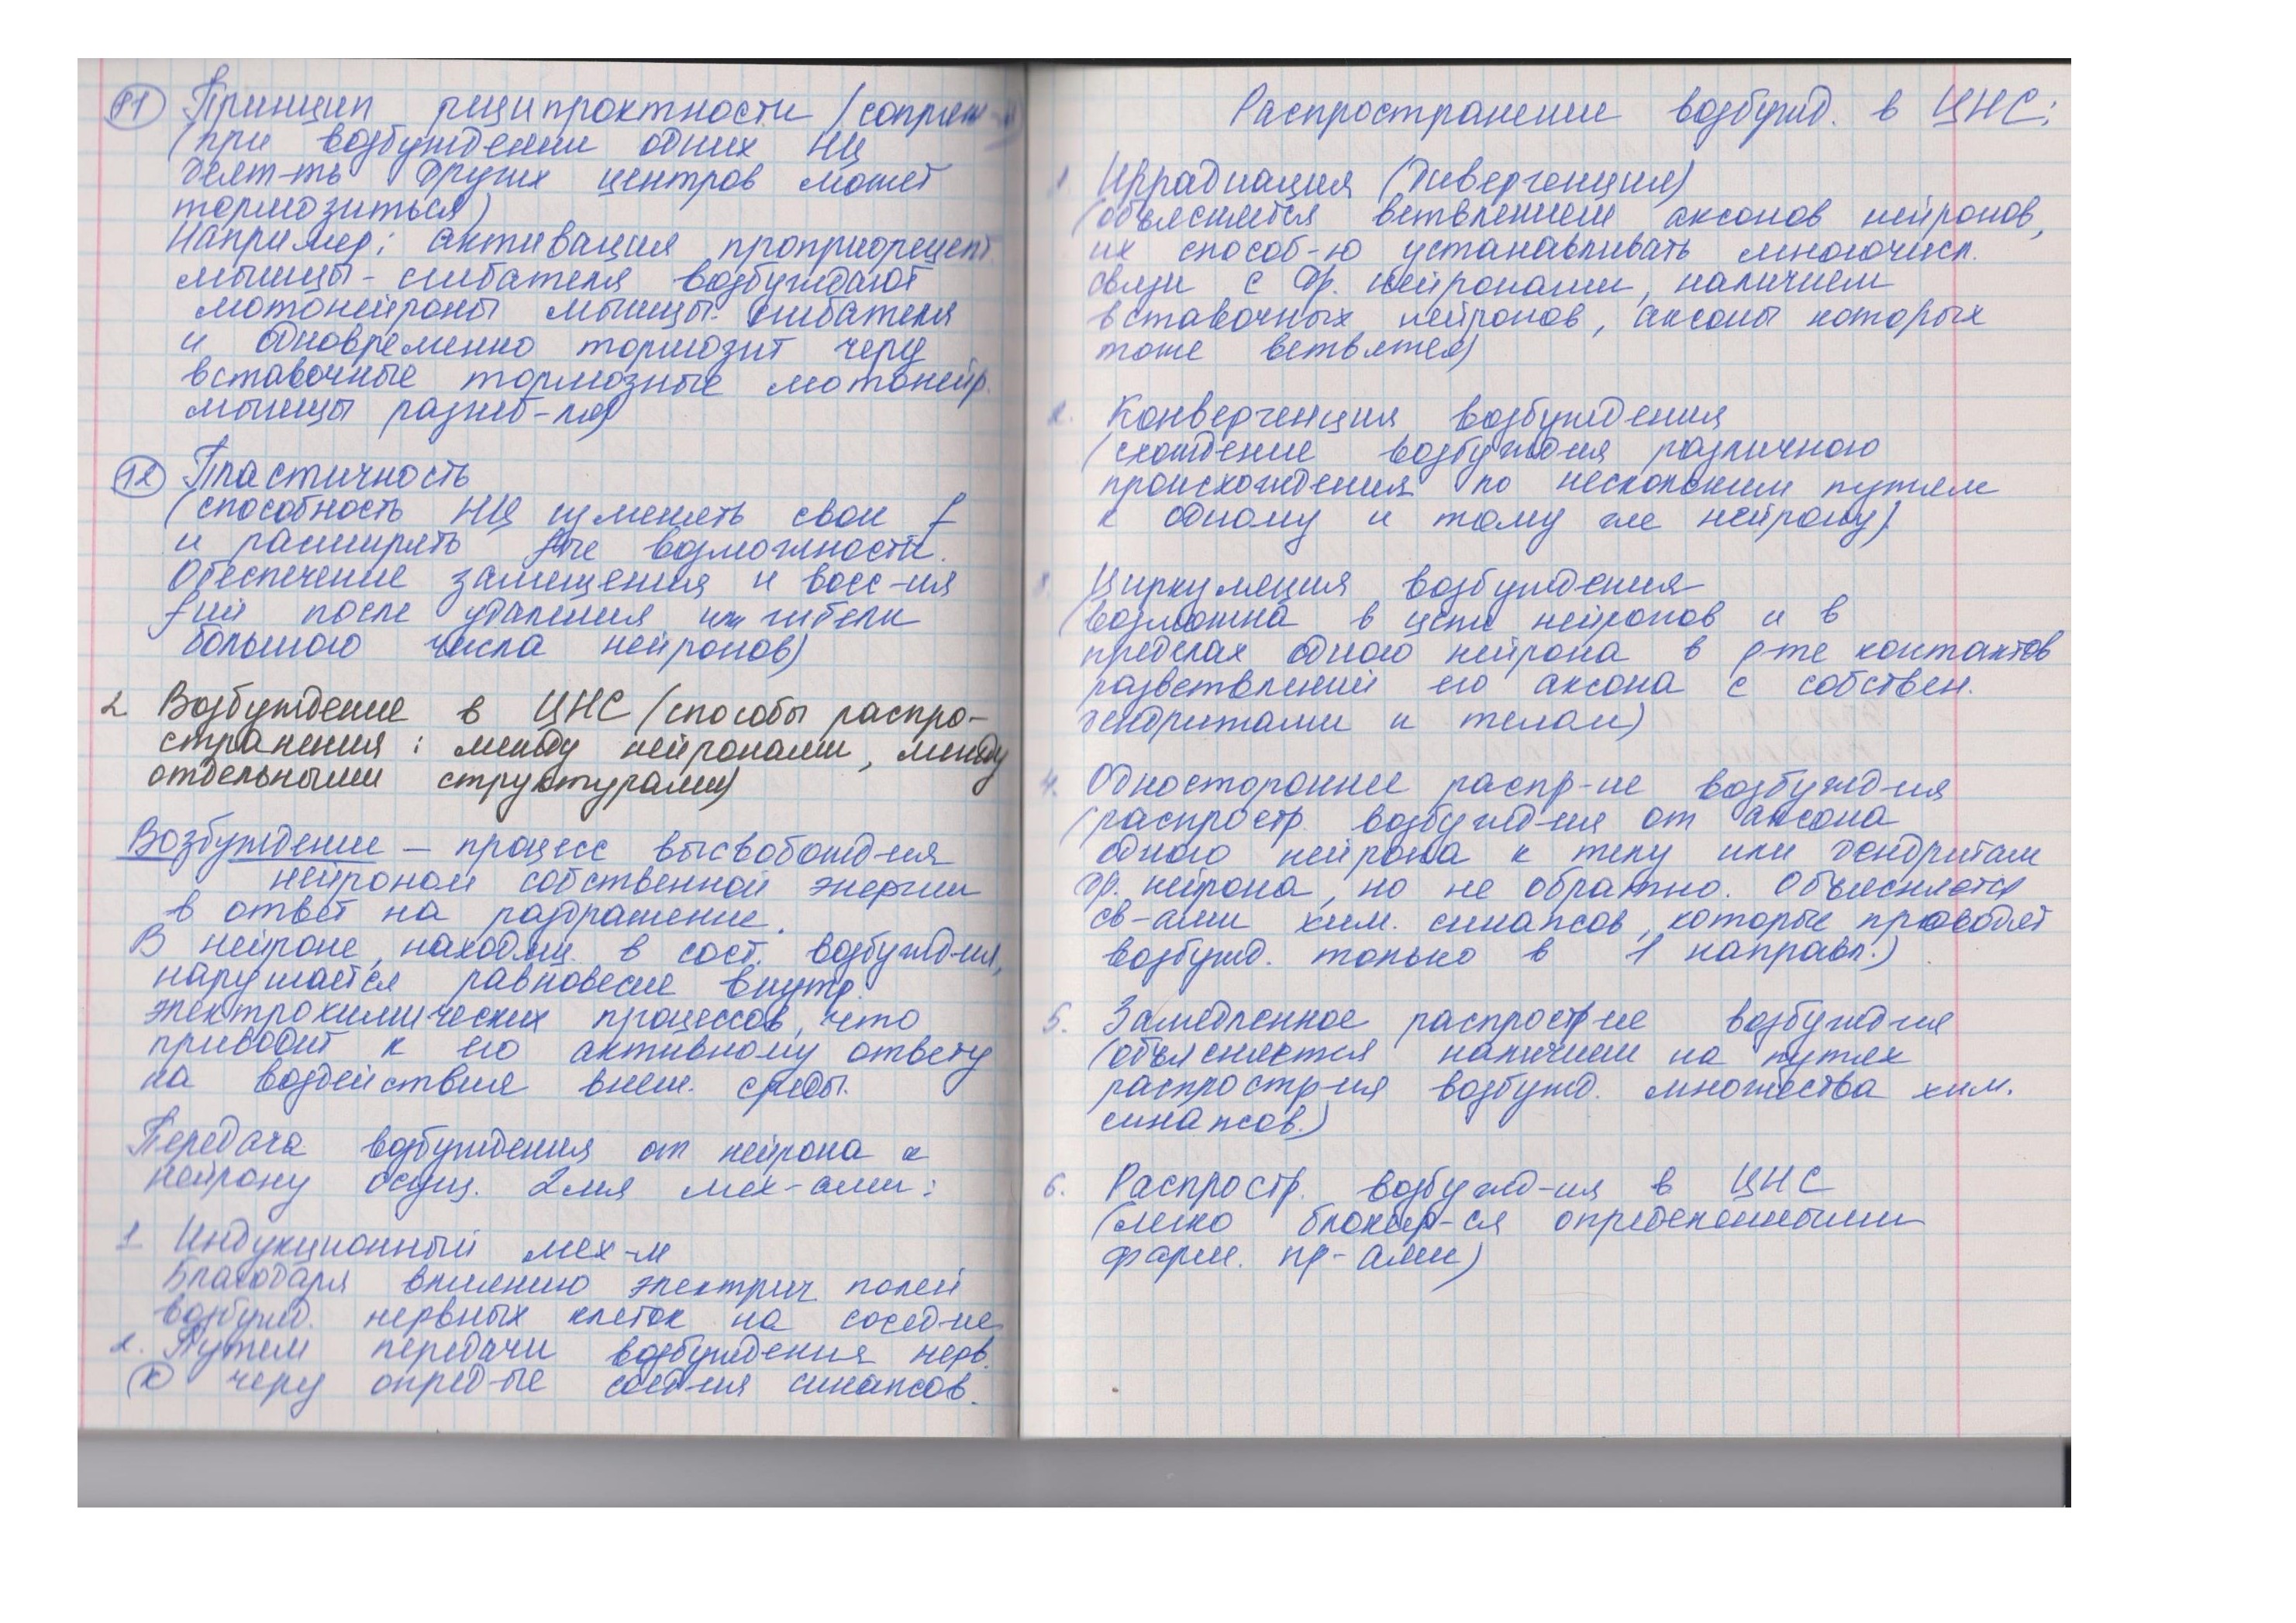 11 Принцип реципрокности (сопряж-
(при возбуждении одних НЦ
деят-ть других центров может
тормозиться)
Например: активация проприорецепт.
мышцы-сгибателя возбуждают
мотонейроны мышцы сгибателя
и одновременно тормозит через
вставочные тормозные мотонейр.
мышцы разгиб-ля)
12 Пластичность
(способность НЦ изменять свои f
и расширять f-ые возможности.
Обеспечение замещения и восс-ия
f-ий после удаления или гибели
большого числа нейронов)
2 Возбуждение в ЦНС (способы распро-
странения: между нейронами, между
отдельными структурами)
Возбуждение – процесс высвобожд-ия
нейроном собственной энергии
в ответ на раздражение.
В нейроне, находящ. в сост. возбужд-ия,
нарушается равновесие внутр.
электрохимических процессов, что
приводит к его активному ответу
на воздействия внеш. среды.
Передача возбуждения от нейрона к
нейрону осущ. 2мя мех-ами:
1 Индукционный мех-м
Благодаря влиянию электрич. полей
возбужд. нервных клеток на соседние
2. Путем передачи возбуждения нерв.
(к) через опред-ые соед-ия синапсов.
Распространение возбужд. в ЦНС:
1. Иррадиация (дивергенция)
(объясняется ветвлением аксонов нейронов,
их способ-ю устанавливать многочисл.
связи с др. нейронами, наличием
вставочных нейронов, аксоны которых
тоже ветвятся)
2. Конвергенция возбуждения
(схождение возбужд-ия различного
происхождения по нескольким путям
к одному и тому же нейрону)
3. Циркуляция возбуждения
(возможна в цепи нейронов и в
пределах одного нейрона в р-те контактов
разветвлений его аксона с собствен.
дендритами и телом)
4. Одностороннее распр-ие возбужд-ия
(распростр. возбужд-ия от аксона
одного нейрона к телу или дендритам
др. нейрона, но не обратно. Объясняется
св-ами хим. синапсов, которые проводят
возбужд. только в 1 направл.)
5. Замедленное распростр-ие возбужд-ия
(объясняется наличием на путях
распростр-ия возбужд. множества хим.
синапсов.)
6. Распростр. возбужд-ия в ЦНС
(легко блокир-ся определенными
фарм. пр-ами)